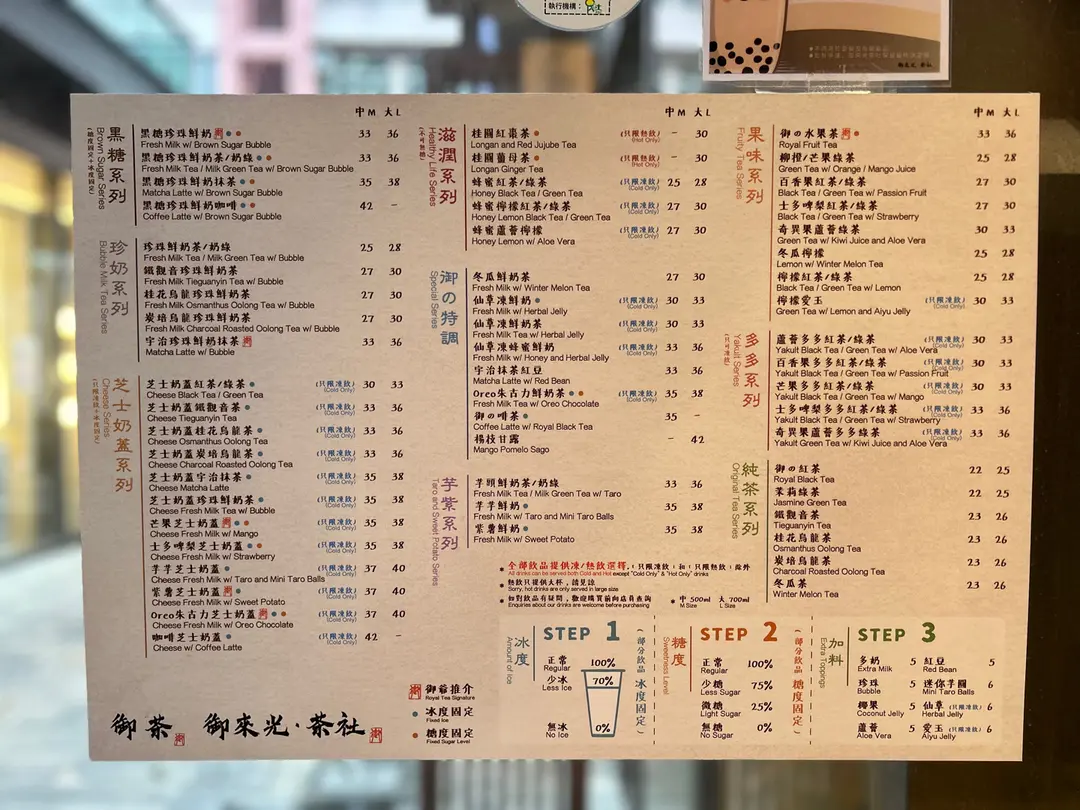 執行機構：
中M 大L
黑糖系列
Brown Sugar Series
(糖度固定+冰度固定)
黑糖珍珠鮮奶 33 36
Fresh Milk w/ Brown Sugar Bubble
黑糖珍珠鮮奶茶/奶綠 33 36
Fresh Milk Tea / Milk Green Tea w/ Brown Sugar Bubble
黑糖珍珠鮮奶抹茶 35 38
Matcha Latte w/ Brown Sugar Bubble
黑糖珍珠鮮奶咖啡 42 -
Coffee Latte w/ Brown Sugar Bubble
珍奶系列
Bubble Milk Tea Series
珍珠鮮奶茶/奶綠 25 28
Fresh Milk Tea / Milk Green Tea w/ Bubble
鐵觀音珍珠鮮奶茶 27 30
Fresh Milk Tieguanyin Tea w/ Bubble
桂花烏龍珍珠鮮奶茶 27 30
Fresh Milk Osmanthus Oolong Tea w/ Bubble
炭培烏龍珍珠鮮奶茶 27 30
Fresh Milk Charcoal Roasted Oolong Tea w/ Bubble
宇治珍珠鮮奶抹茶 33 36
Matcha Latte w/ Bubble
芝士奶蓋系列
Cheese Series
芝士奶蓋紅茶/綠茶 (只限凍飲) (Cold Only) 30 33
Cheese Black Tea / Green Tea
芝士奶蓋鐵觀音茶 (只限凍飲) (Cold Only) 33 36
Cheese Tieguanyin Tea
芝士奶蓋桂花烏龍茶 (只限凍飲) (Cold Only) 33 36
Cheese Osmanthus Oolong Tea
芝士奶蓋炭培烏龍茶 (只限凍飲) (Cold Only) 33 36
Cheese Charcoal Roasted Oolong Tea
芝士奶蓋宇治抹茶 (只限凍飲) (Cold Only) 35 38
Cheese Matcha Latte
芝士奶蓋珍珠鮮奶茶 (只限凍飲) (Cold Only) 35 38
Cheese Fresh Milk Tea w/ Bubble
芒果芝士奶蓋 (只限凍飲) (Cold Only) 35 38
Cheese Fresh Milk w/ Mango
士多啤梨芝士奶蓋 (只限凍飲) (Cold Only) 35 38
Cheese Fresh Milk w/ Strawberry
芋芋芝士奶蓋 (只限凍飲) (Cold Only) 37 40
Cheese Fresh Milk w/ Taro and Mini Taro Balls
紫薯芝士奶蓋 (只限凍飲) (Cold Only) 37 40
Cheese Fresh Milk w/ Sweet Potato
Oreo朱古力芝士奶蓋 (只限凍飲) (Cold Only) 37 40
Cheese Fresh Milk w/ Oreo Chocolate
咖啡芝士奶蓋 (只限凍飲) (Cold Only) 42 -
Cheese w/ Coffee Latte
御茶 御來光·茶社
御爺推介
Royal Tea Signature
冰度固定
Fixed Ice
糖度固定
Fixed Sugar Level
中M 大L
滋潤系列
Healthy Life Series
桂圓紅棗茶 (只限熱飲) (Hot Only) - 30
Longan and Red Jujube Tea
桂圓薑母茶 (只限熱飲) (Hot Only) - 30
Longan Ginger Tea
蜂蜜紅茶/綠茶 (只限凍飲) (Cold Only) 25 28
Honey Black Tea / Green Tea
蜂蜜檸檬紅茶/綠茶 (只限凍飲) (Cold Only) 27 30
Honey Lemon Black Tea / Green Tea
蜂蜜蘆薈檸檬 (只限凍飲) (Cold Only) 27 30
Honey Lemon w/ Aloe Vera
御の特調
Special Series
冬瓜鮮奶茶 27 30
Fresh Milk w/ Winter Melon Tea
仙草凍鮮奶 (只限凍飲) (Cold Only) 30 33
Fresh Milk w/ Herbal Jelly
仙草凍鮮奶茶 (只限凍飲) (Cold Only) 30 33
Fresh Milk Tea w/ Herbal Jelly
仙草凍蜂蜜鮮奶 (只限凍飲) (Cold Only) 33 36
Fresh Milk w/ Honey and Herbal Jelly
宇治抹茶紅豆 33 36
Matcha Latte w/ Red Bean
Oreo朱古力鮮奶茶 (只限凍飲) (Cold Only) 35 38
Fresh Milk Tea w/ Oreo Chocolate
御の啡茶 35 -
Coffee Latte w/ Royal Black Tea
楊枝甘露 - 42
Mango Pomelo Sago
芋紫系列
Taro and Sweet Potato Series
芋頭鮮奶茶/奶綠 33 36
Fresh Milk Tea / Milk Green Tea w/ Taro
芋芋鮮奶 35 38
Fresh Milk w/ Taro and Mini Taro Balls
紫薯鮮奶 35 38
Fresh Milk w/ Sweet Potato
全部飲品提供凍/熱飲選擇, "只限凍飲" 和 "只限熱飲" 除外
All drinks can be served both Cold and Hot except "Cold Only" & "Hot Only" drinks
熱飲只提供大杯, 請見諒
Sorry, hot drinks are only served in large size
如對飲品有疑問, 歡迎購買前向店員查詢
Enquiries about our drinks are welcome before purchasing
中 500ml 大 700ml
M Size L Size
中M 大L
果味系列
Fruity Tea Series
御の水果茶 33 36
Royal Fruit Tea
柳橙/芒果綠茶 25 28
Green Tea w/ Orange / Mango Juice
百香果紅茶/綠茶 27 30
Black Tea / Green Tea w/ Passion Fruit
士多啤梨紅茶/綠茶 27 30
Black Tea / Green Tea w/ Strawberry
奇異果蘆薈綠茶 30 33
Green Tea w/ Kiwi Juice and Aloe Vera
冬瓜檸檬 25 28
Lemon w/ Winter Melon Tea
檸檬紅茶/綠茶 25 28
Black Tea / Green Tea w/ Lemon
檸檬愛玉 (只限凍飲) (Cold Only) 30 33
Green Tea w/ Lemon and Aiyu Jelly
多多系列
Yakult Series
蘆薈多多紅茶/綠茶 (只限凍飲) (Cold Only) 30 33
Yakult Black Tea / Green Tea w/ Aloe Vera
百香果多多紅茶/綠茶 (只限凍飲) (Cold Only) 30 33
Yakult Black Tea / Green Tea w/ Passion Fruit
芒果多多紅茶/綠茶 (只限凍飲) (Cold Only) 30 33
Yakult Black Tea / Green Tea w/ Mango
士多啤梨多多紅茶/綠茶 (只限凍飲) (Cold Only) 33 36
Yakult Black Tea / Green Tea w/ Strawberry
奇異果蘆薈多多綠茶 (只限凍飲) (Cold Only) 33 36
Yakult Green Tea w/ Kiwi Juice and Aloe Vera
純茶系列
Original Tea Series
御の紅茶 22 25
Royal Black Tea
茉莉綠茶 22 25
Jasmine Green Tea
鐵觀音茶 23 26
Tieguanyin Tea
桂花烏龍茶 23 26
Osmanthus Oolong Tea
炭培烏龍茶 23 26
Charcoal Roasted Oolong Tea
冬瓜茶 23 26
Winter Melon Tea
冰度
Amount of Ice
STEP 1
正常 100%
Regular
少冰 70%
Less Ice
無冰 0%
No Ice
(部分飲品冰度固定)
糖度
Sweetness Level
STEP 2
正常 100%
Regular
少糖 75%
Less Sugar
微糖 25%
Light Sugar
無糖 0%
No Sugar
(部分飲品糖度固定)
加料
Extra Toppings
STEP 3
多奶 5 紅豆 5
Extra Milk Red Bean
珍珠 5 迷你芋圓 6
Bubble Mini Taro Balls
椰果 5 仙草 (只限凍飲) 6
Coconut Jelly Herbal Jelly
蘆薈 5 愛玉 (只限凍飲) 6
Aloe Vera Aiyu Jelly